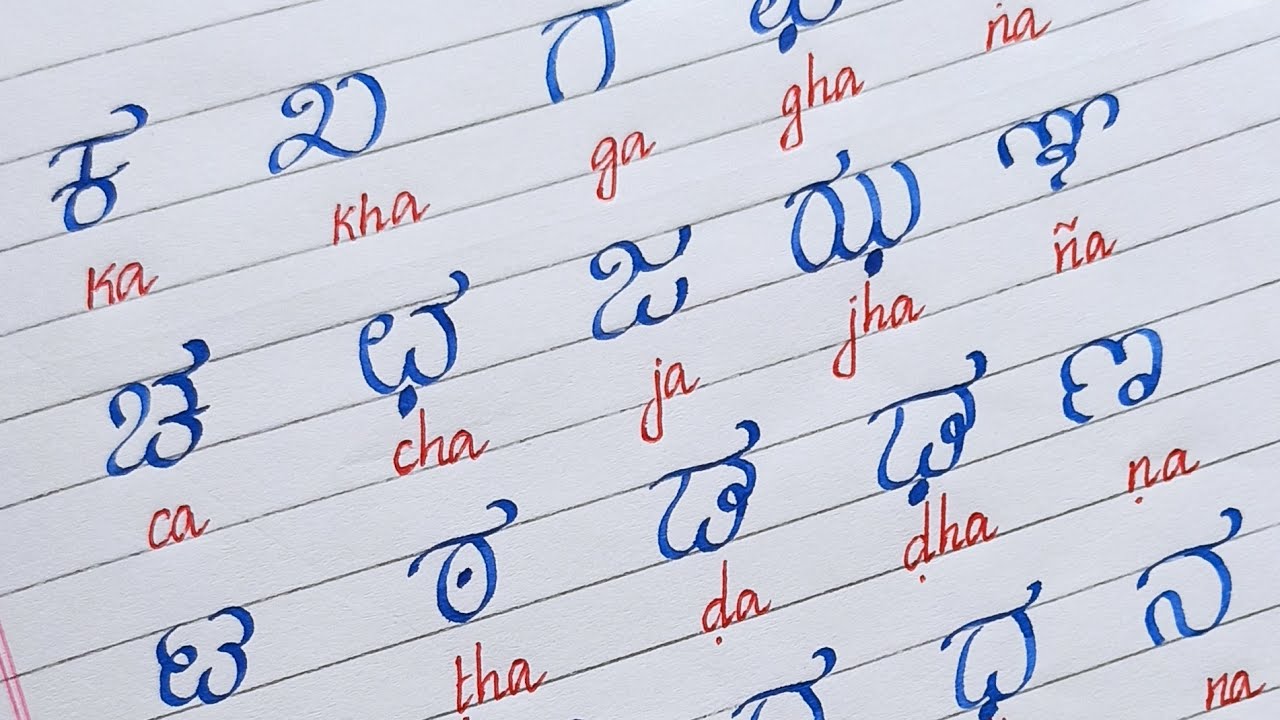 ಕ ಖ ಗ ಘ
ka kha ga gha ṅa
ಚ ಛ ಜ ಝ ಞ
ca cha ja jha ña
ಟ ಠ ಡ ಢ ಣ
ṭha ḍa ḍha ṇa
ಧ ನ
na